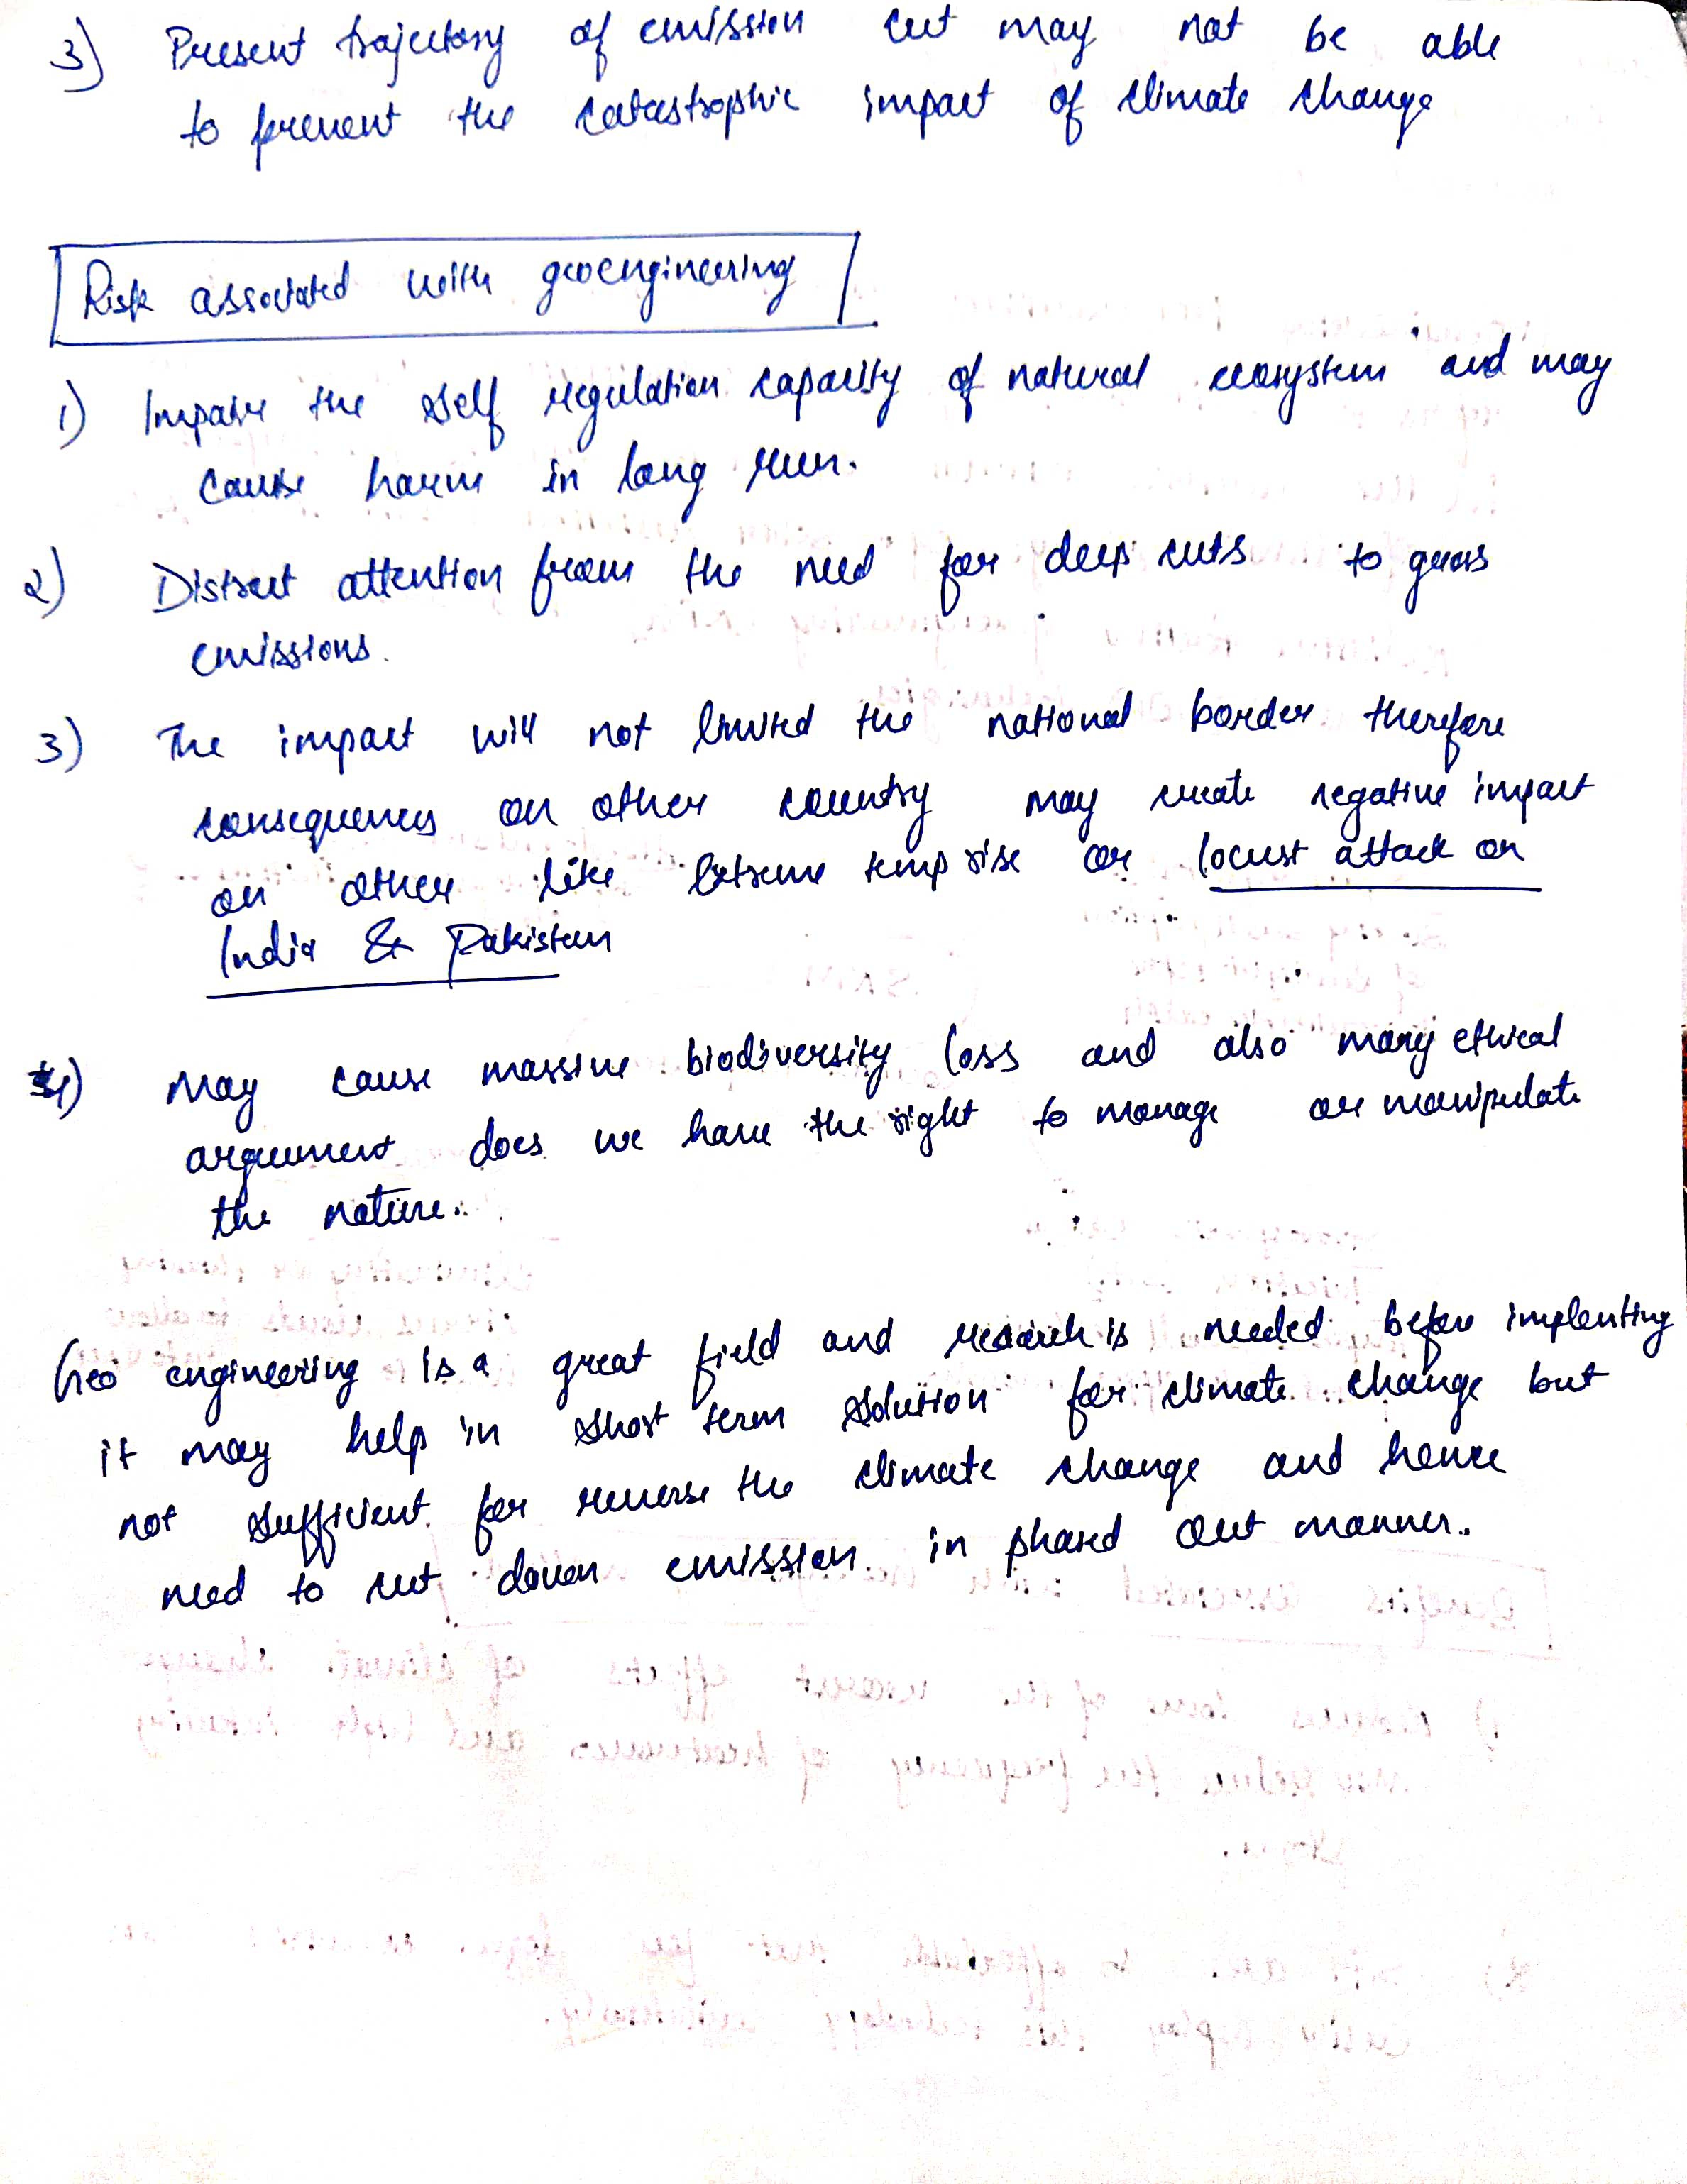 3) Present trajectory of emission cut may not be able
to prevent the catastrophic impact of climate change
Risk associated with geoengineering
1) Impair the self regulation capacity of natural ecosystem and may
cause harm in long run.
2) Distract attention from the need for deep cuts to gases
emissions.
3) The impact will not limited the national border therefore
consequences on other country may create negative impact
on other like Extreme temp rise or locust attack on
India & Pakistan
4) May cause massive biodiversity loss and also many ethical
argument does we have the right to manage or manipulate
the nature.
Geo engineering is a great field and research is needed before implenting
it may help in short term solution for climate change but
not sufficient for reverse the climate change and hence
need to cut down emission in phased out manner.